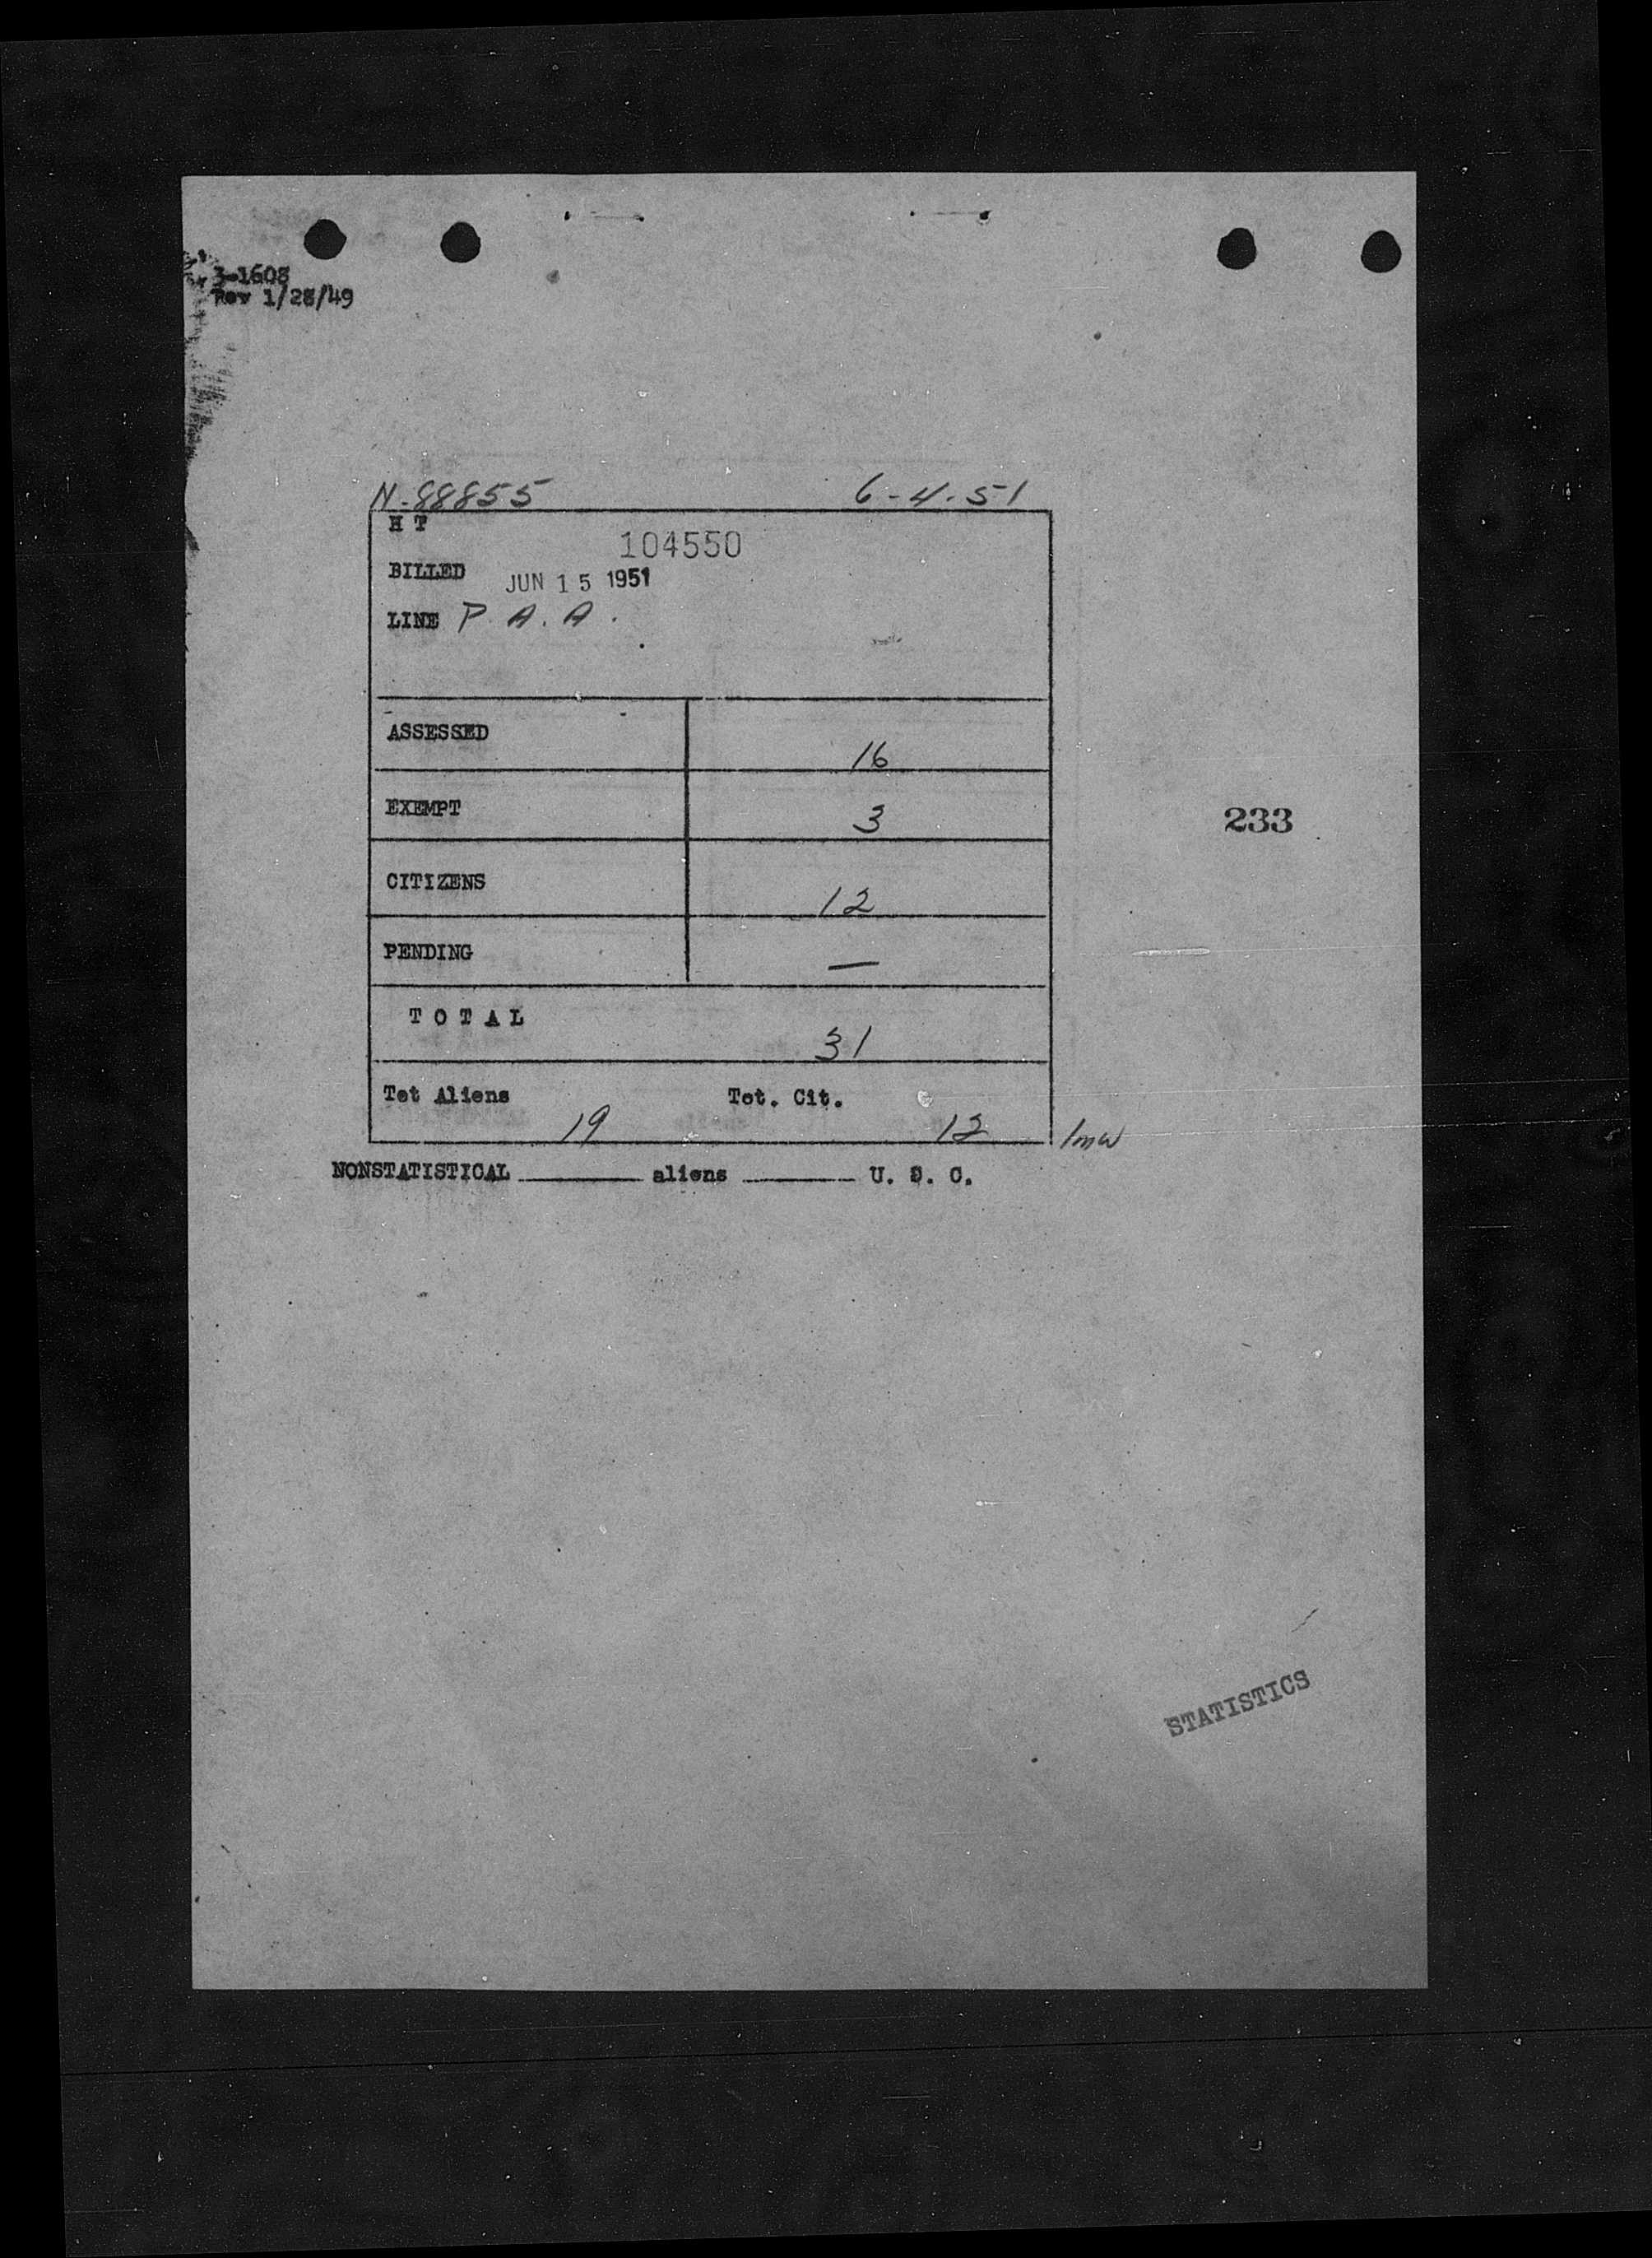 3-1608
Rev 1/28/49
N-88855 6-4-51
H T
104550
BILLED JUN 15 1951
LINE P. A. A.
ASSESSED 16
EXEMPT 3
233
CITIZENS 12
PENDING —
TOTAL 31
Tot Aliens 19 Tot. Cit. 12 lmw
NONSTATISTICAL ______ aliens ______ U. S. C.
STATISTICS